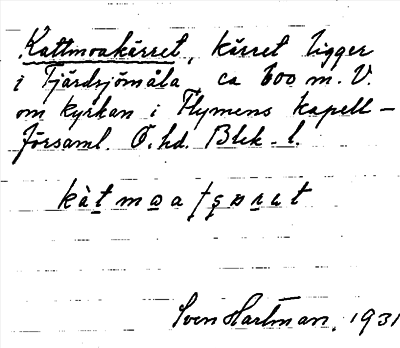 Kattmoakärret, kärret ligger
i Fjärdsjömåla ca 600 m. V.
om kyrkan i Flymens kapell-
församl. Ö. hd. Blek. l.
Sven Hartman, 1931